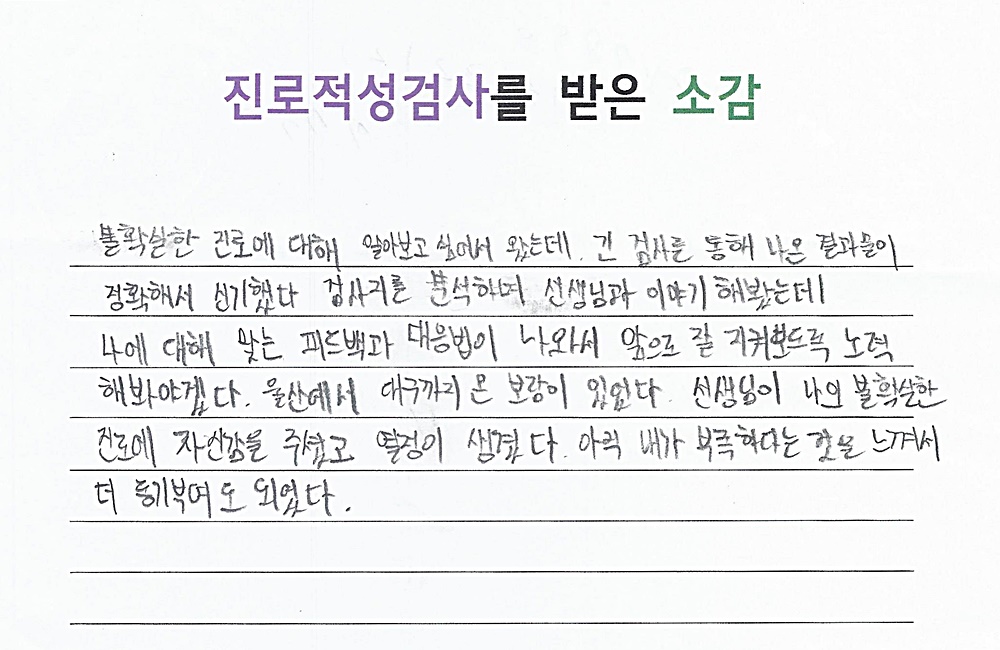 진로적성검사를 받은 소감
불확실한 진로에 대해 알아보고 싶어서 왔는데. 긴 검사를 통해 나온 결과물이
정확해서 신기했다 검사지를 분석하며 선생님과 이야기 해봤는데
나에 대해 맞는 피드백과 대응법이 나와서 앞으로 잘 지켜보도록 노력
해봐야겠다. 울산에서 대구까지 온 보람이 있었다. 선생님이 나의 불확실한
진로에 자신감을 주셨고 열정이 생겼다. 아직 내가 부족하다는 것을 느껴서
더 동기부여도 되었다.